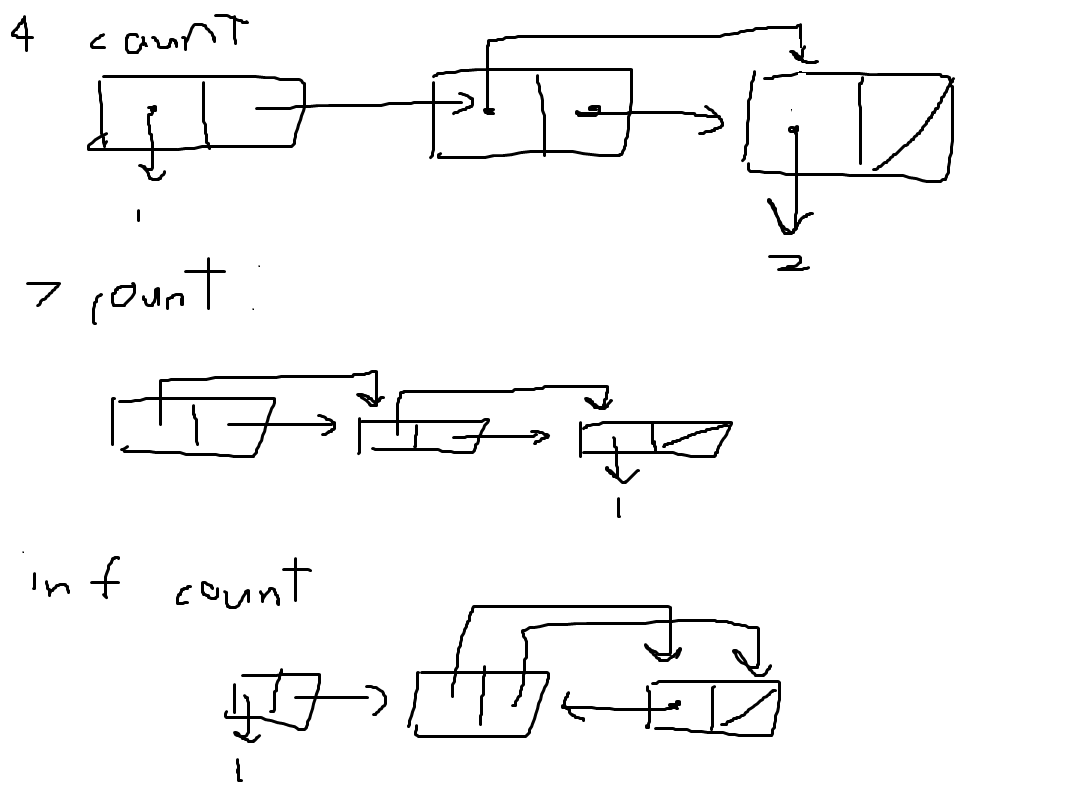 4 count
1
2
7 count
1
inf count
1